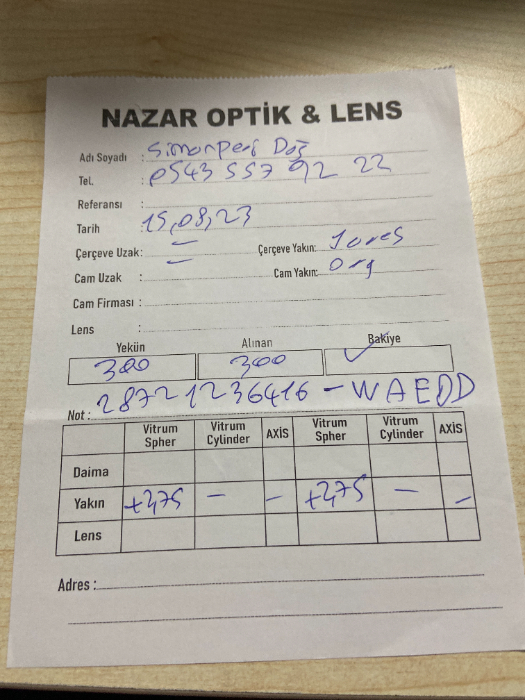 NAZAR OPTİK & LENS
Adı Soyadı : Simonperi Dağ
Tel. : 0543 557 92 22
Referansı :
Tarih : 15,08,23
Çerçeve Uzak: — Çerçeve Yakın: Jones
Cam Uzak : — Cam Yakın: Org
Cam Firması :
Lens :
Yekün Alınan Bakiye
300 300 ✓
Not : 28721236416 - WAEDD
Vitrum Spher Vitrum Cylinder AXİS Vitrum Spher Vitrum Cylinder AXİS
Daima
Yakın +2,75 — — +2,75 — —
Lens
Adres :